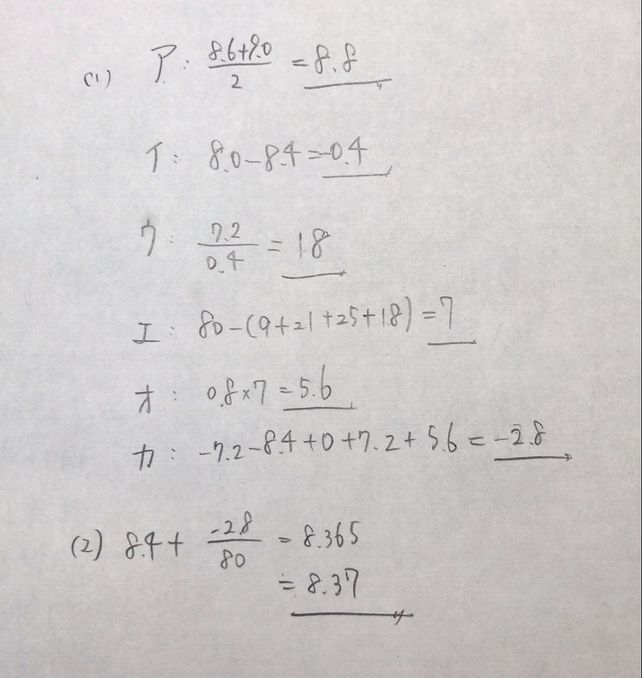 (1) ア: (8.6+9.0)/2 = 8.8
イ: 8.0-8.4=-0.4
ウ: 7.2/0.4 = 18
エ: 80-(9+21+25+18)=7
オ: 0.8×7=5.6
カ: -7.2-8.4+0+7.2+5.6=-2.8
(2) 8.4+ -2.8/80 = 8.365
≒ 8.37